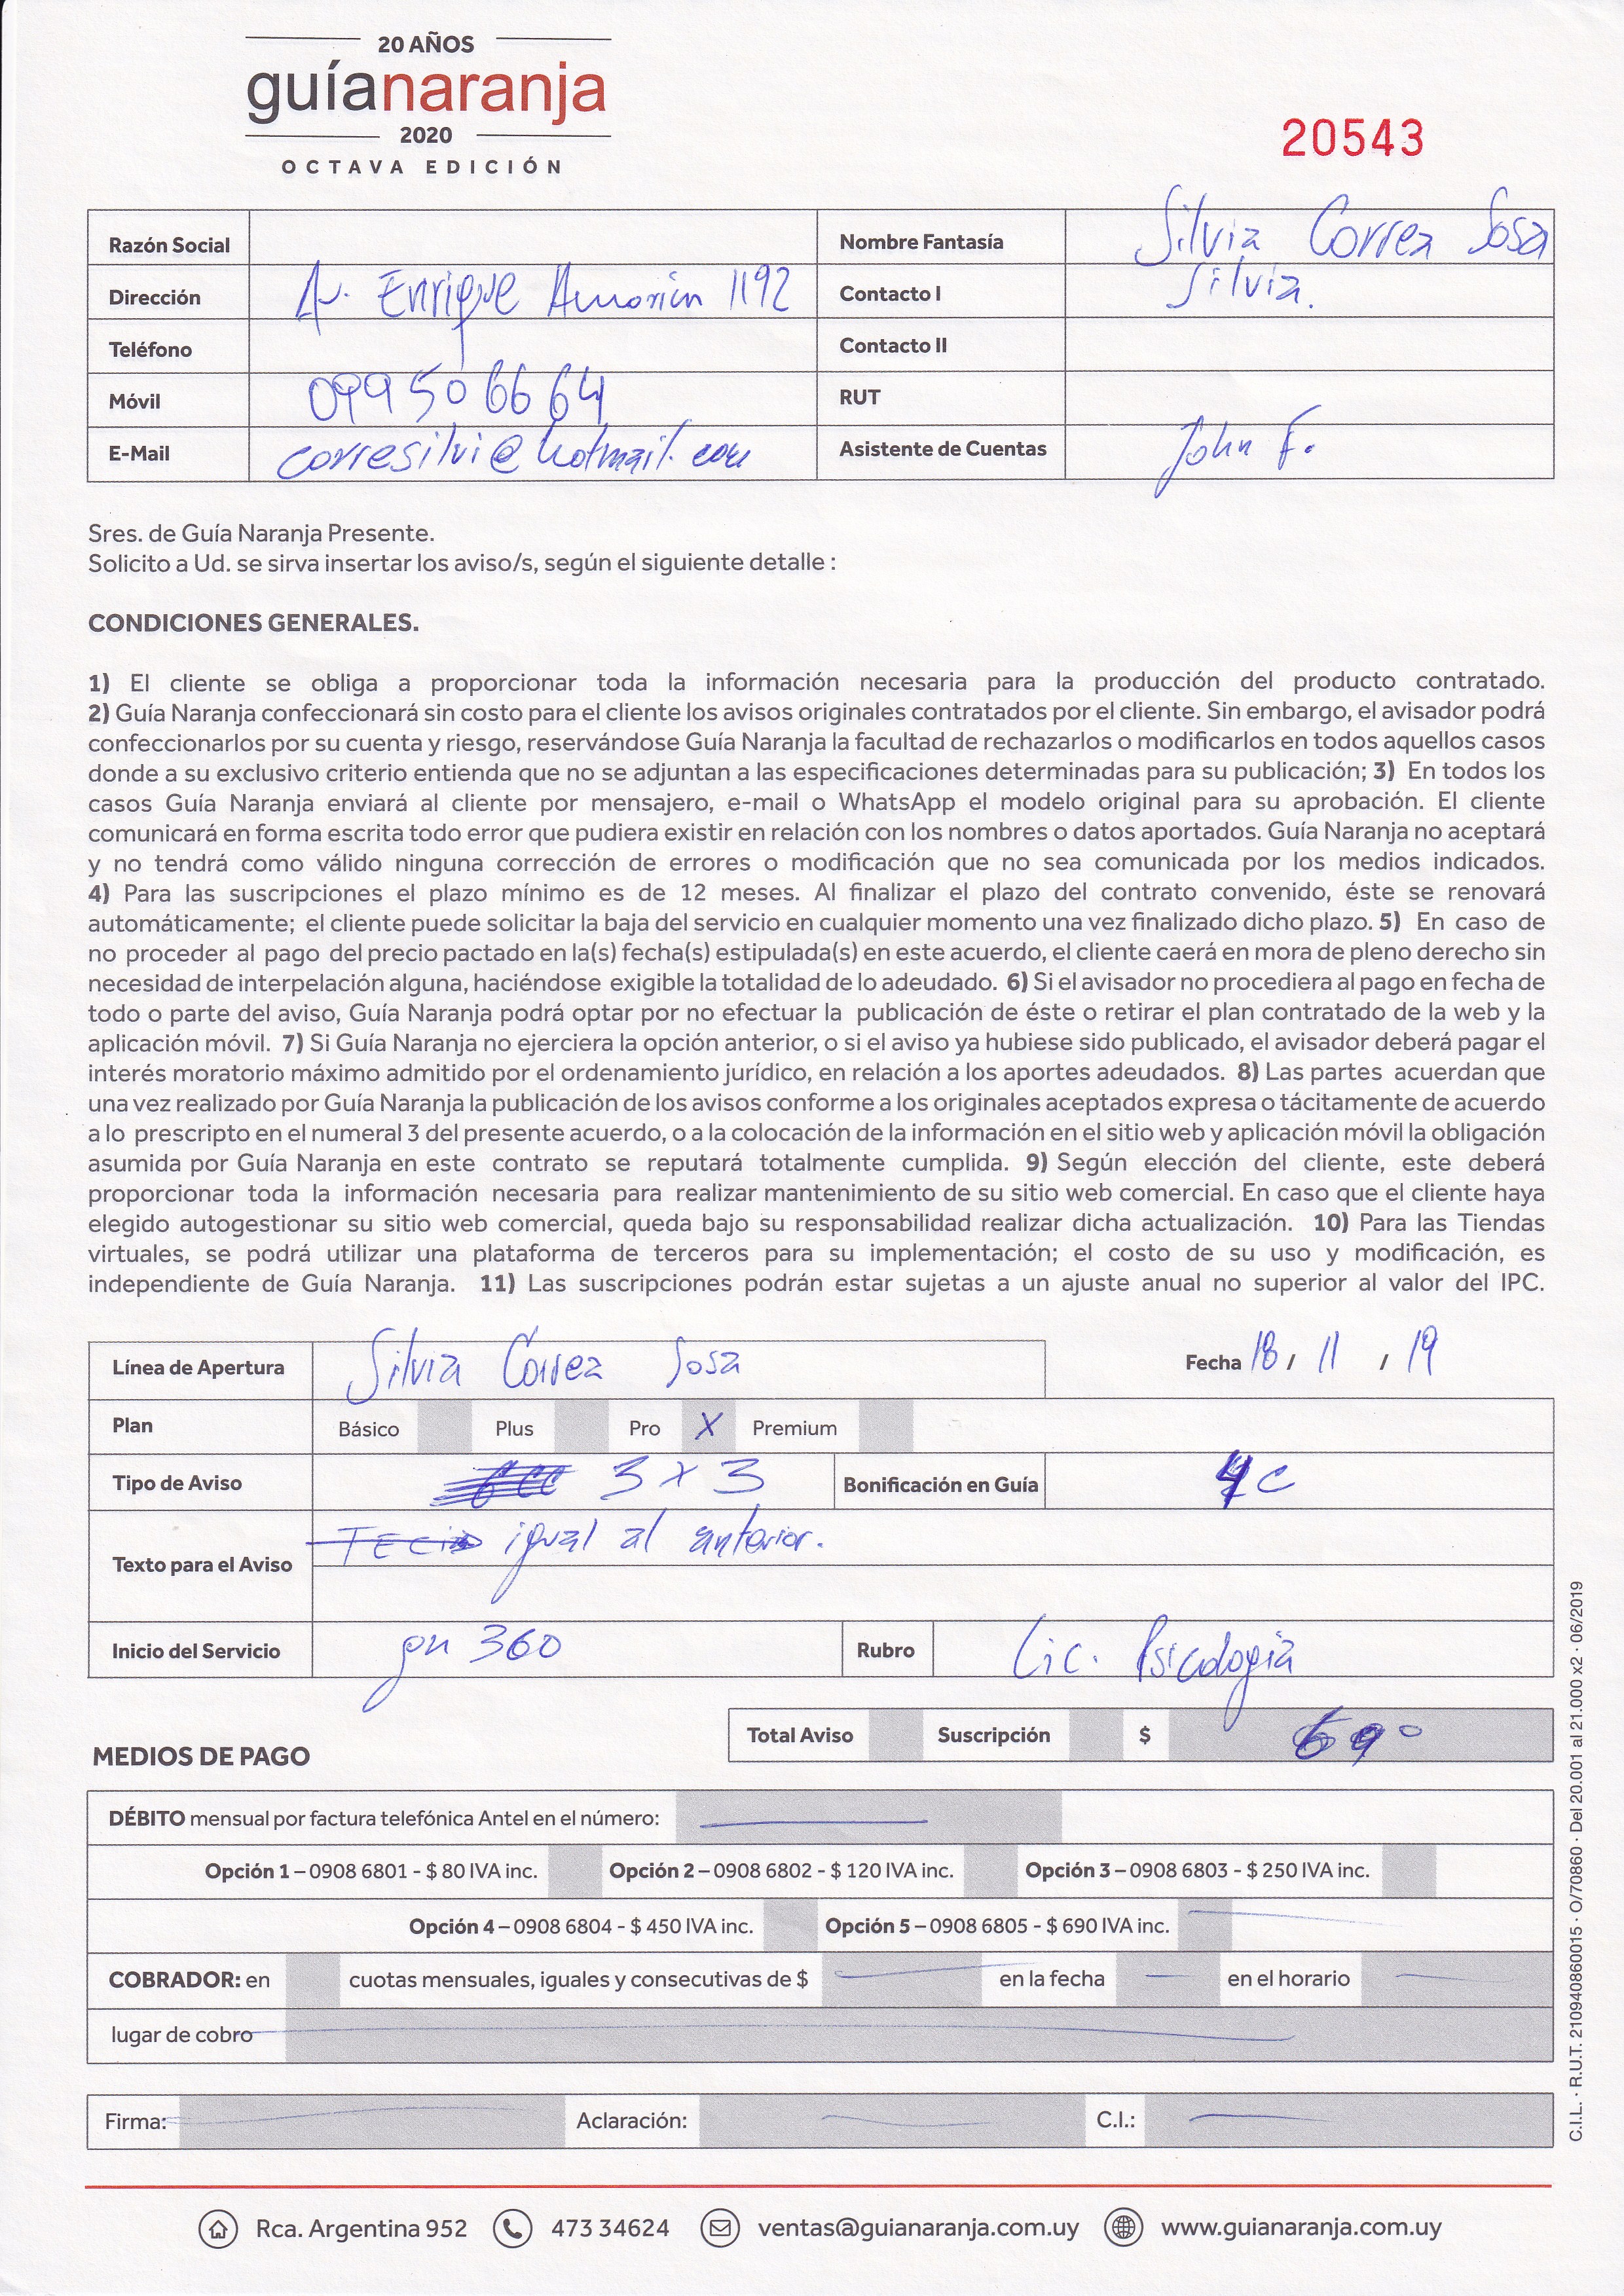 20 AÑOS
guíanaranja
2020
OCTAVA EDICIÓN
20543
Razón Social
Nombre Fantasía Silvia Correa Sosa
Dirección Av. Enrique Amorin 1192
Contacto I Silvia.
Teléfono
Contacto II
Móvil 099 50 66 64
RUT
E-Mail corresilvi@hotmail.com
Asistente de Cuentas John F.
Sres. de Guía Naranja Presente.
Solicito a Ud. se sirva insertar los aviso/s, según el siguiente detalle :
CONDICIONES GENERALES.
1) El cliente se obliga a proporcionar toda la información necesaria para la producción del producto contratado.
2) Guía Naranja confeccionará sin costo para el cliente los avisos originales contratados por el cliente. Sin embargo, el avisador podrá
confeccionarlos por su cuenta y riesgo, reservándose Guía Naranja la facultad de rechazarlos o modificarlos en todos aquellos casos
donde a su exclusivo criterio entienda que no se adjuntan a las especificaciones determinadas para su publicación; 3) En todos los
casos Guía Naranja enviará al cliente por mensajero, e-mail o WhatsApp el modelo original para su aprobación. El cliente
comunicará en forma escrita todo error que pudiera existir en relación con los nombres o datos aportados. Guía Naranja no aceptará
y no tendrá como válido ninguna corrección de errores o modificación que no sea comunicada por los medios indicados.
4) Para las suscripciones el plazo mínimo es de 12 meses. Al finalizar el plazo del contrato convenido, éste se renovará
automáticamente; el cliente puede solicitar la baja del servicio en cualquier momento una vez finalizado dicho plazo. 5) En caso de
no proceder al pago del precio pactado en la(s) fecha(s) estipulada(s) en este acuerdo, el cliente caerá en mora de pleno derecho sin
necesidad de interpelación alguna, haciéndose exigible la totalidad de lo adeudado. 6) Si el avisador no procediera al pago en fecha de
todo o parte del aviso, Guía Naranja podrá optar por no efectuar la publicación de éste o retirar el plan contratado de la web y la
aplicación móvil. 7) Si Guía Naranja no ejerciera la opción anterior, o si el aviso ya hubiese sido publicado, el avisador deberá pagar el
interés moratorio máximo admitido por el ordenamiento jurídico, en relación a los aportes adeudados. 8) Las partes acuerdan que
una vez realizado por Guía Naranja la publicación de los avisos conforme a los originales aceptados expresa o tácitamente de acuerdo
a lo prescripto en el numeral 3 del presente acuerdo, o a la colocación de la información en el sitio web y aplicación móvil la obligación
asumida por Guía Naranja en este contrato se reputará totalmente cumplida. 9) Según elección del cliente, este deberá
proporcionar toda la información necesaria para realizar mantenimiento de su sitio web comercial. En caso que el cliente haya
elegido autogestionar su sitio web comercial, queda bajo su responsabilidad realizar dicha actualización. 10) Para las Tiendas
virtuales, se podrá utilizar una plataforma de terceros para su implementación; el costo de su uso y modificación, es
independiente de Guía Naranja. 11) Las suscripciones podrán estar sujetas a un ajuste anual no superior al valor del IPC.
Línea de Apertura Silvia Correa Sosa
Fecha 18 / 11 / 19
Plan Básico Plus Pro X Premium
Tipo de Aviso 3 x 3
Bonificación en Guía 4c
Texto para el Aviso igual al anterior.
Inicio del Servicio gn 360
Rubro Lic. Psicología
Total Aviso Suscripción $ 690
MEDIOS DE PAGO
DÉBITO mensual por factura telefónica Antel en el número:
Opción 1 – 0908 6801 - $ 80 IVA inc. Opción 2 – 0908 6802 - $ 120 IVA inc. Opción 3 – 0908 6803 - $ 250 IVA inc.
Opción 4 – 0908 6804 - $ 450 IVA inc. Opción 5 – 0908 6805 - $ 690 IVA inc.
COBRADOR: en cuotas mensuales, iguales y consecutivas de $ en la fecha en el horario
lugar de cobro
Firma: Aclaración: C.I.:
C.I.L. · R.U.T. 210940860015 · O/70860 · Del 20.001 al 21.000 x2 · 06/2019
Rca. Argentina 952 473 34624 ventas@guianaranja.com.uy www.guianaranja.com.uy